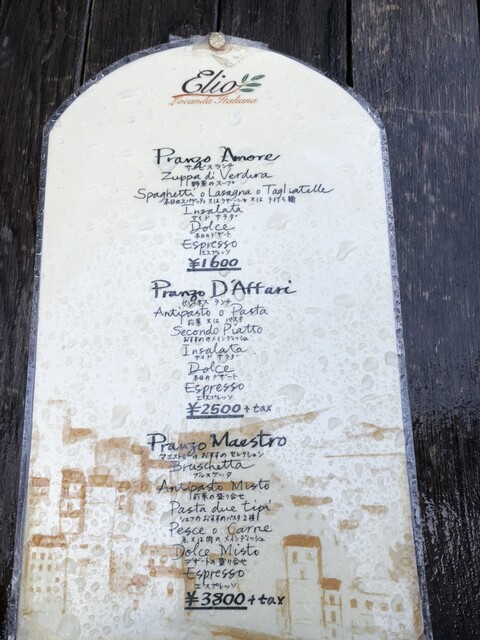 Elio
Locanda Italiana
Pranzo Amore
サービスランチ
Zuppa di Verdura
野菜のスープ
Spaghetti o Lasagna o Tagliatelle
本日のスパゲッティ又はラザーニャ又は手打ち麺
Insalata
サイド サラダ
Dolce
本日のデザート
Espresso
エスプレッソ
¥1600
Pranzo D'Affari
ビジネス ランチ
Antipasto o Pasta
前菜 又は パスタ
Secondo Piatto
おすすめメインディッシュ
Insalata
サイド サラダ
Dolce
本日のデザート
Espresso
エスプレッソ
¥2500+tax
Pranzo Maestro
マエストロの おすすめ セレクション
Bruschetta
ブルスケッタ
Antipasto Misto
前菜の盛り合せ
Pasta due tipi
シェフのおすすめパスタ2種
Pesce o Carne
魚又は肉のメインディッシュ
Dolce Misto
デザートの盛り合せ
Espresso
エスプレッソ
¥3800+tax